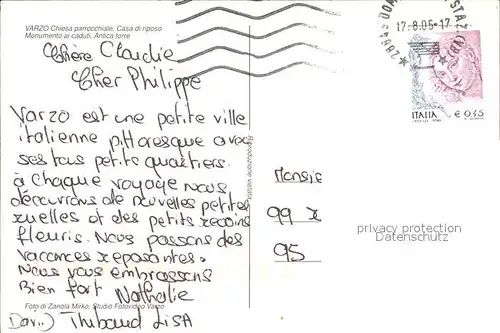 VARZO Chiesa parrocchiale, Casa di riposo
Monumento ai caduti, Antica torre
Chère Claudie
Cher Philippe
Varzo est une petite ville
italienne pittoresque avec
ses tous petits quartiers.
à chaque voyage nous
découvrons de nouvelles petites
ruelles et des petits recoins
fleuris. Nous passons des
vacances reposantes.
Nous vous embrassons
Bien fort Nathalie
David Thibaud LISA
Foto di Zanola Mirko, Studio Fotovideo Varzo
Riproduzione vietata
17.8.05-17
ITALIA € 0,45
Monsie
99 X
95
privacy protection
Datenschutz